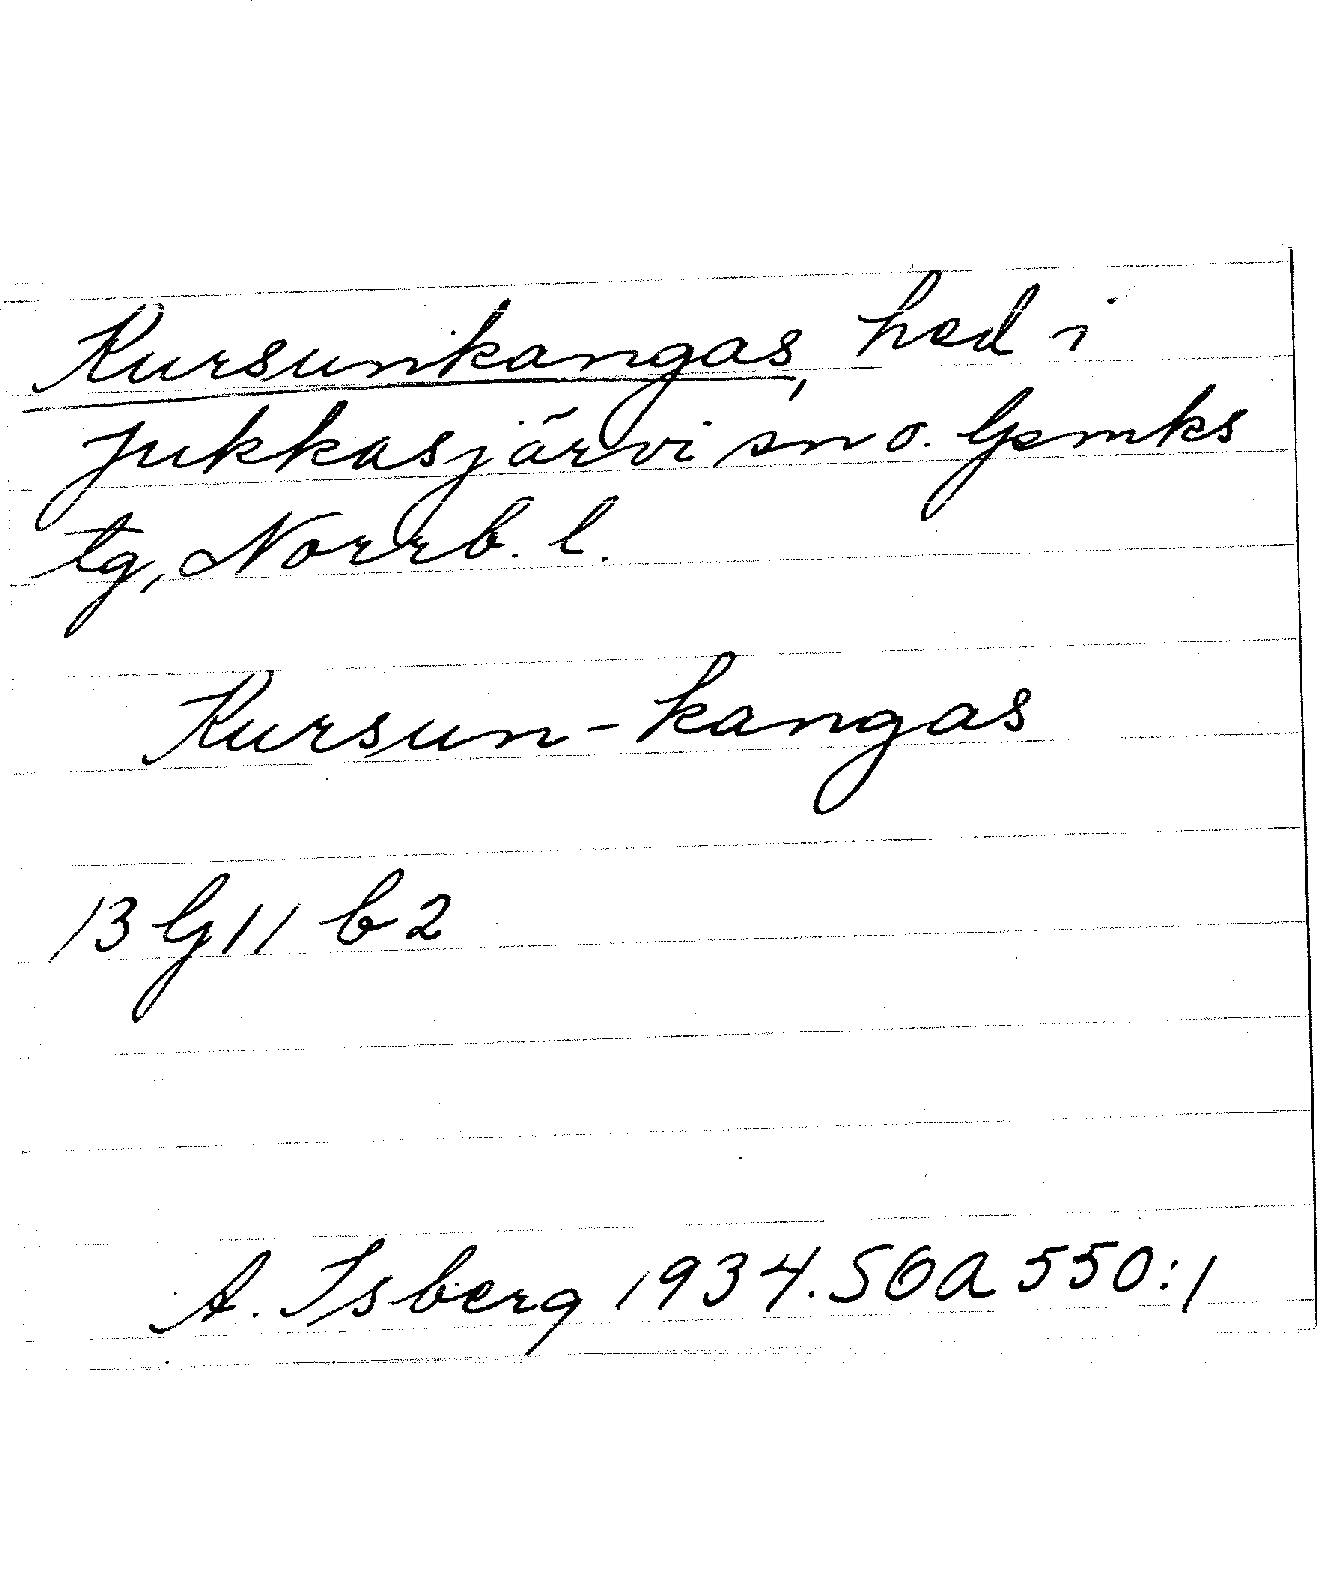 Kursunkangas, hed i
Jukkasjärvi sn o. Gemks
tg, Norrb. l.
Kursun-kangas
13 G 11 b 2
A. Isberg 1934. SOA 550:1